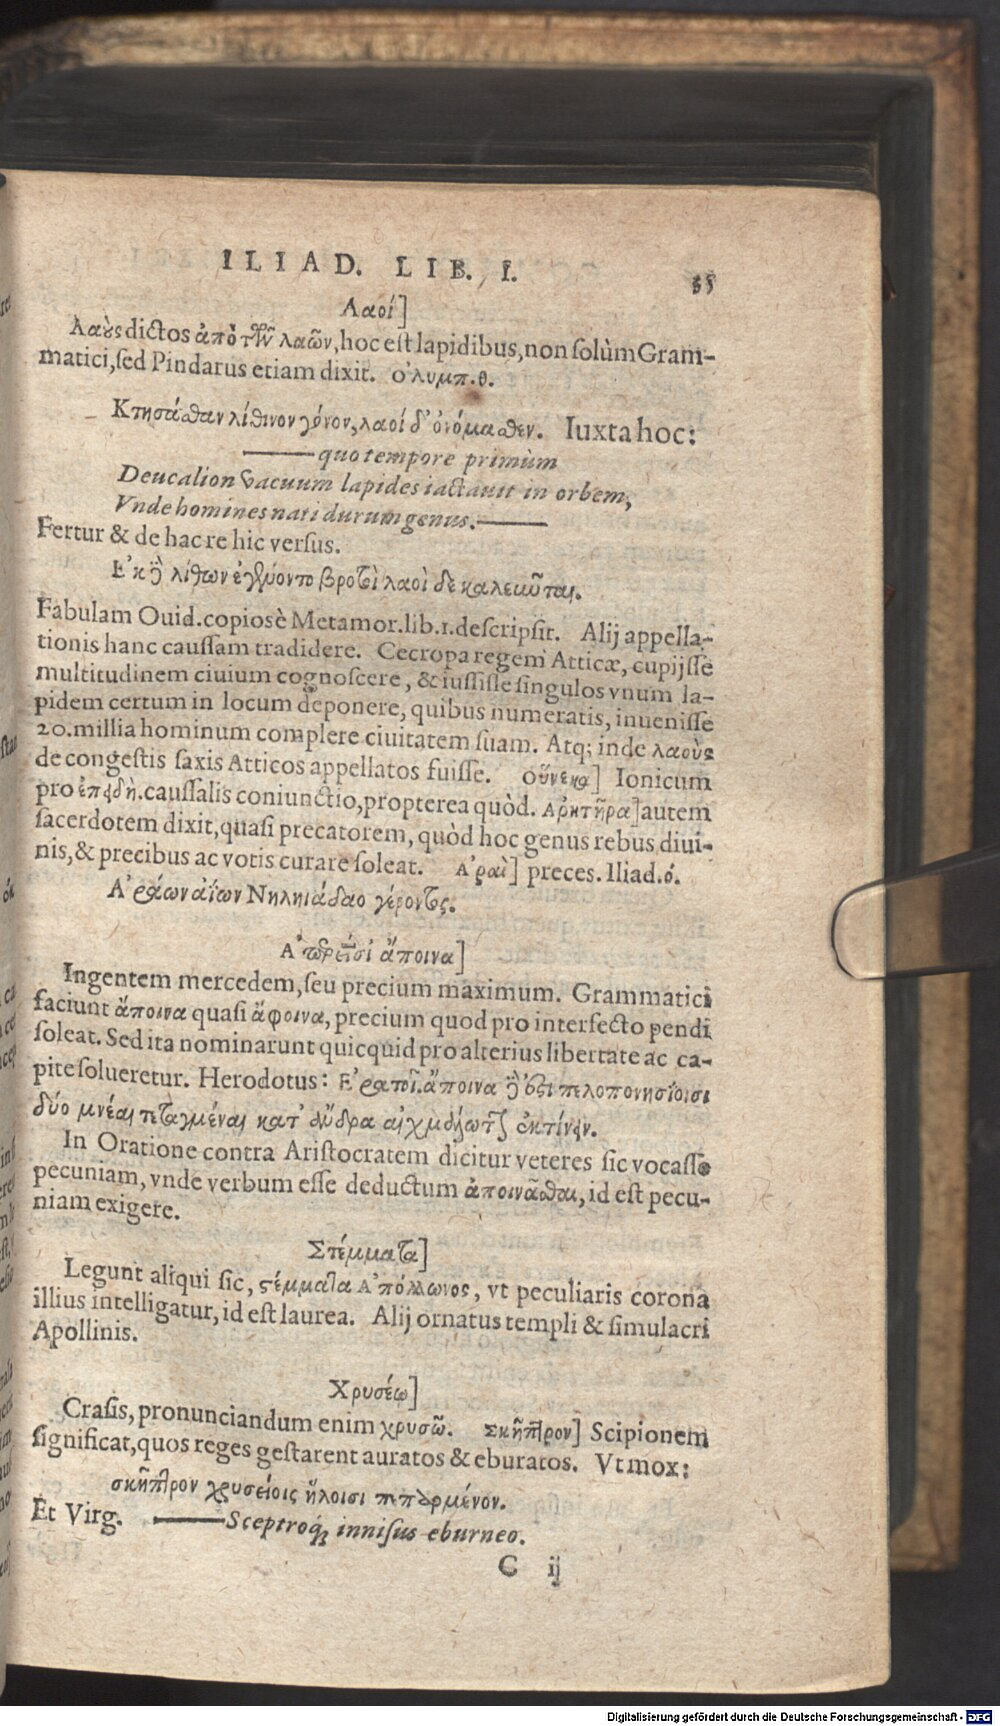 ILIAD. LIB. I.
35
Λαοί]
Λαοὺς dictos ἀπὸ τῶν λαῶν, hoc est lapidibus, non solùm Gram-
matici, sed Pindarus etiam dixit. Ολυμπ.θ.
Κτησάσθαν λίθινον γόνον, λαοί δ' ὀνόμασθεν. Iuxta hoc:
quo tempore primùm
Deucalion vacuum lapides iactauit in orbem,
Vnde homines nati durum genus.
Fertur & de hac re hic versus.
Ε'κ δὲ λίθων ἐγένοντο βροτοὶ λαοὶ δὲ καλεῦνται.
Fabulam Ouid. copiosè Metamor. lib. 1. descripsit. Alij appella-
tionis hanc caussam tradidere. Cecropa regem Atticæ, cupijsse
multitudinem ciuium cognoscere, & iussisse singulos vnum la-
pidem certum in locum deponere, quibus numeratis, inuenisse
20. millia hominum complere ciuitatem suam. Atq; inde λαοὺς
de congestis saxis Atticos appellatos fuisse. Οὕνεκα] Ionicum
pro ἐπειδὴ. caussalis coniunctio, propterea quòd. Αρητῆρα] autem
sacerdotem dixit, quasi precatorem, quòd hoc genus rebus diui-
nis, & precibus ac votis curare soleat. Α'ραὶ] preces. Iliad. ό.
Α'ράων ἀΐων Νηληιάδαο γέροντος.
Α'περείσι' ἄποινα]
Ingentem mercedem, seu precium maximum. Grammatici
faciunt ἄποινα quasi ἄφοινα, precium quod pro interfecto pendi
soleat. Sed ita nominarunt quicquid pro alterius libertate ac ca-
pite solueretur. Herodotus: Ε'ρατοῖ. ἄποινα δέ ἐστι πελοποννησίοισι
δύο μνέαι τεταγμέναι κατ' ἄνδρα αἰχμάλωτον ἐκτίνειν.
In Oratione contra Aristocratem dicitur veteres sic vocasse
pecuniam, vnde verbum esse deductum ἀποινᾶσθαι, id est pecu-
niam exigere.
Στέμματα]
Legunt aliqui sic, στέμματα Α'πόλλωνος, vt peculiaris corona
illius intelligatur, id est laurea. Alij ornatus templi & simulacri
Apollinis.
Χρυσέῳ]
Crasis, pronunciandum enim χρυσῷ. Σκῆπτρον] Scipionem
significat, quos reges gestarent auratos & eburatos. Vt mox:
σκῆπτρον χρυσείοις ἥλοισι πεπαρμένον.
Et Virg. Sceptroq; innisus eburneo.
C ij
Digitalisierung gefördert durch die Deutsche Forschungsgemeinschaft - DFG